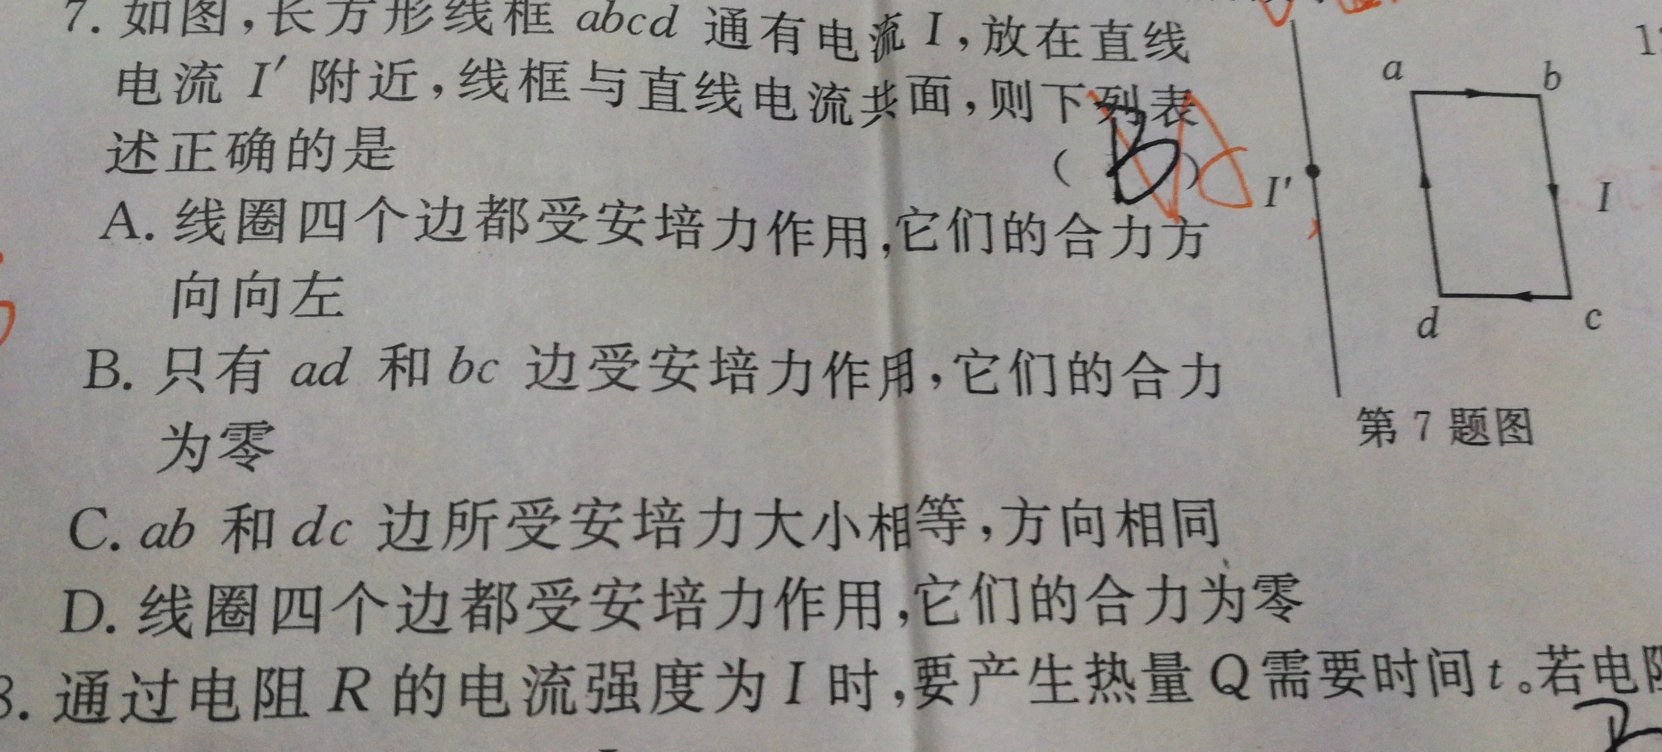 7. 如图,长方形线框 abcd 通有电流 I,放在直线
电流 I′ 附近,线框与直线电流共面,则下列表
述正确的是 ( B )
A. 线圈四个边都受安培力作用,它们的合力方
向向左
B. 只有 ad 和 bc 边受安培力作用,它们的合力
为零
C. ab 和 dc 边所受安培力大小相等,方向相同
D. 线圈四个边都受安培力作用,它们的合力为零
8. 通过电阻 R 的电流强度为 I 时,要产生热量 Q 需要时间 t。若电阻
a
b
I′
I
d
c
第 7 题图